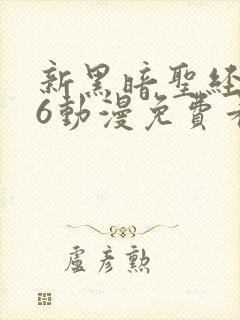 新黑暗聖經
6動漫免費
盧彥勲